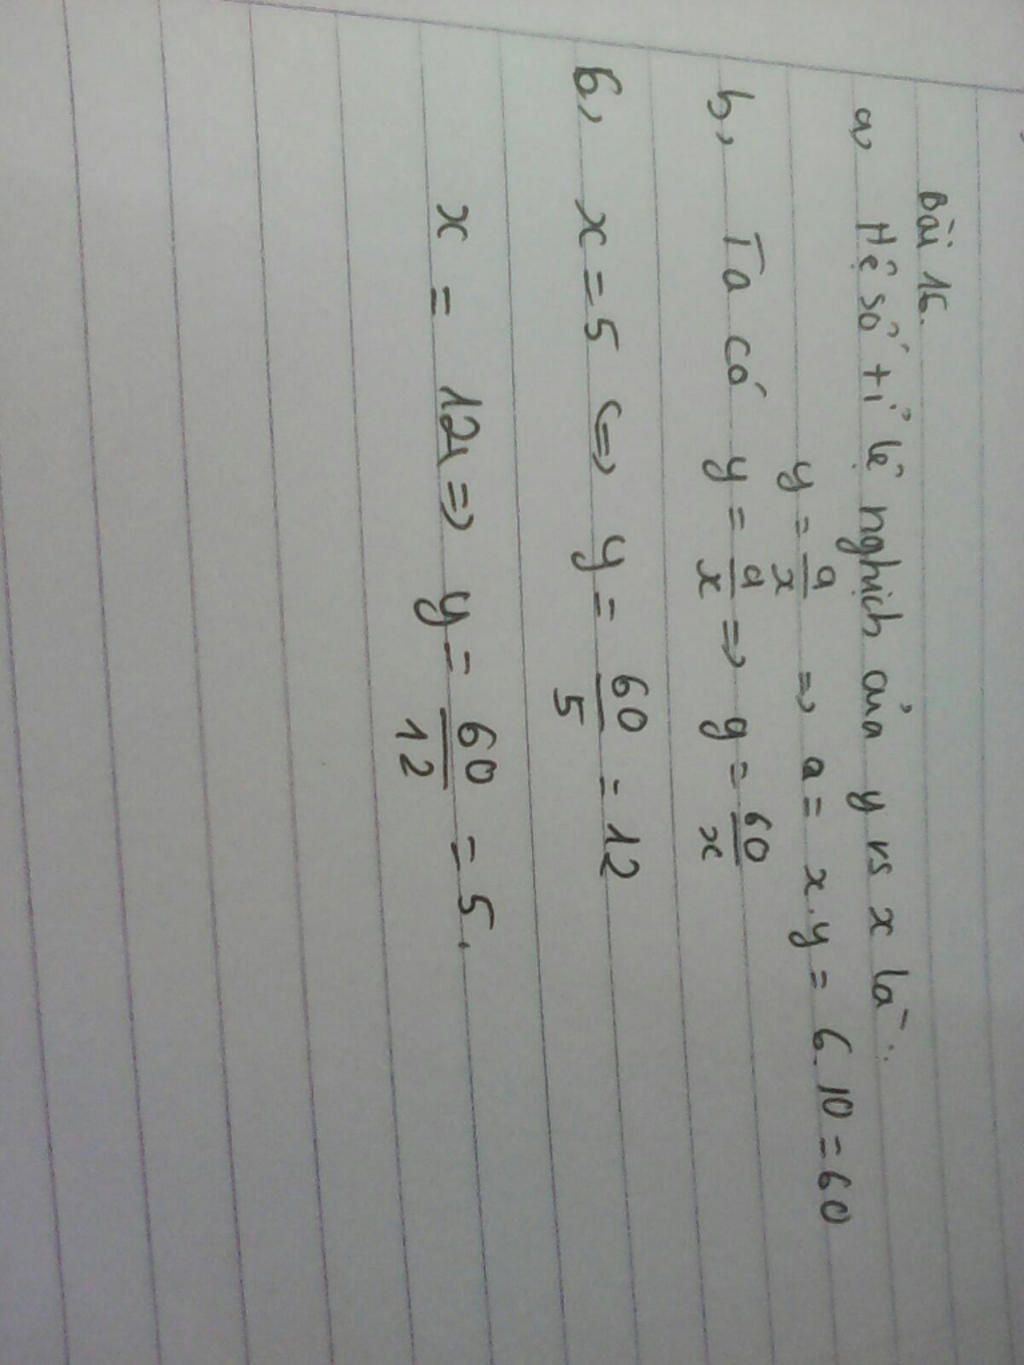 Bài 16.
a, Hệ số tỉ lệ nghịch của y vs x là:
y = a/x => a = x.y = 6.10 = 60
b, Ta có y = a/x => y = 60/x
6, x = 5 <=> y = 60/5 = 12
x = 12 => y = 60/12 = 5.